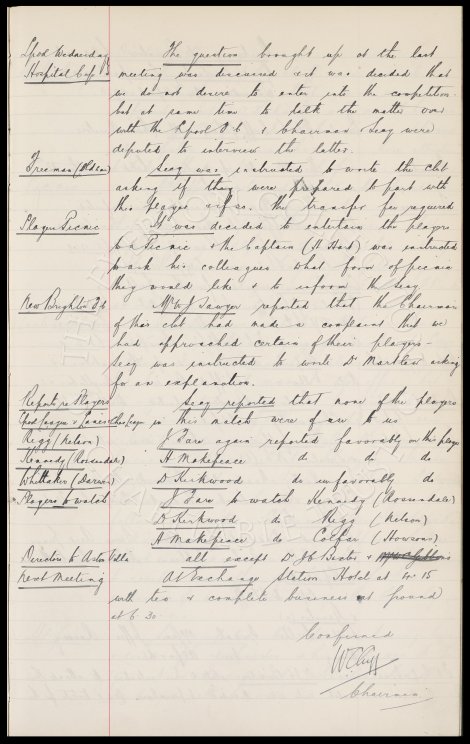 Lpool Wednesday The question brought up at the last
Hospital Cup meeting was discussed & it was decided that
we do not desire to enter into the competition
but at same time to talk the matter over
with the Lpool F.C. & Chairman & Secy were
deputed to interview the latter.
Freeman (Oldham) Secy was instructed to write the club
asking if they were prepared to part with
this player & if so the transfer fee required
Players Picnic It was decided to entertain the players
to a Picnic & the Captain (A Hart) was instructed
to ask his colleagues what form of picnic
they would like & to inform the Secy
New Brighton F.C. Mr W J Sawyer reported that the Chairman
of this club had made a complaint that we
had approached certain of their players -
Secy was instructed to write Dr Martlew asking
for an explanation.
Reports re Players Secy reported that none of the players
in this match were of use to us
Rigg (Nelson) J Tarn again reported favorably on this player
Kennedy (Rossendale) A Makepeace do do do
Whittaker (Darwen) D Kirkwood do unfavorably do
Players to watch J Tarn to watch Kennedy (Rossendale)
D Kirkwood do Rigg (Nelson)
A Makepeace do (
Directors to Aston Villa all except Dr J C Baxter &
Next Meeting At Exchange Station Hotel at 4.15
with tea & complete business at ground
at 6.30
Confirmed
W C Cuff
Chairman